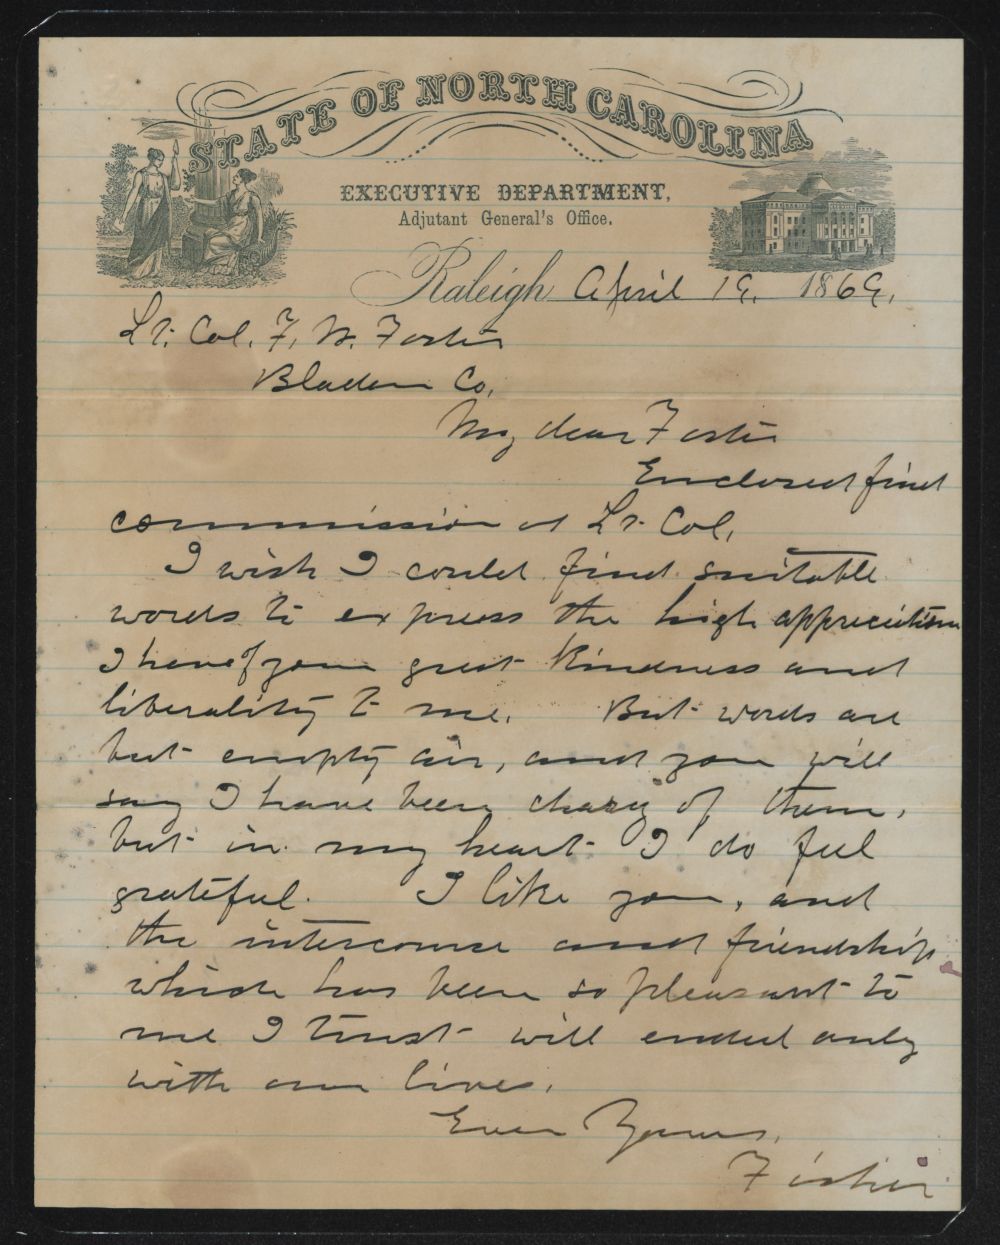 STATE OF NORTH CAROLINA
EXECUTIVE DEPARTMENT,
Adjutant General's Office.
Raleigh April 19. 1869.
Lt. Col. F. W. Foster
Bladen Co.
My dear Foster
Enclosed find
commission as Lt. Col.
I wish I could find suitable
words to express the high appreciation
I have of your great kindness and
liberality to me. But words are
but empty air, and you will
say I have been chary of them,
but in my heart I do feel
grateful. I like you, and
the intercourse and friendship
which has been so pleasant to
me I trust will ended only
with our lives.
Ever Yours,
Fisher